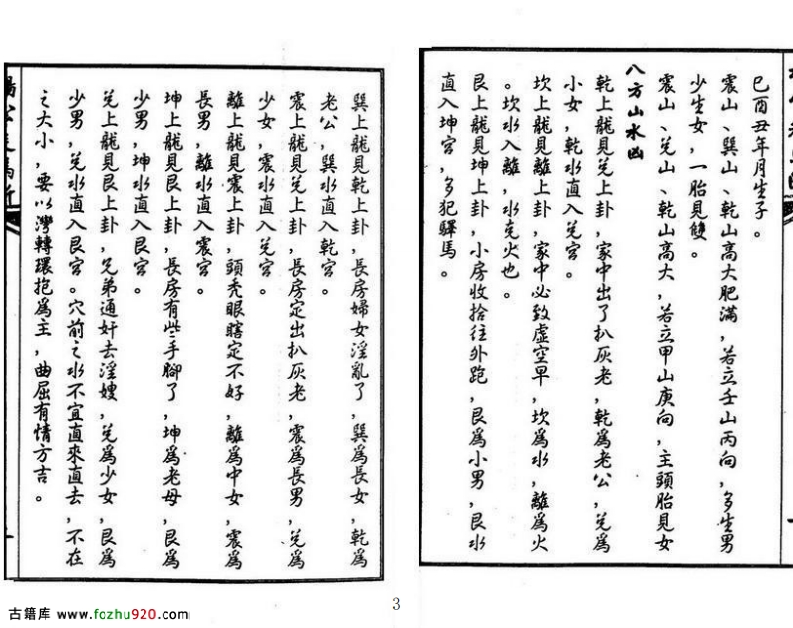 巳酉丑年月生子。
震山、巽山、乾山高大肥滿，若立壬山丙向，多生男
少生女，一胎見雙。
震山、兑山、乾山高大，若立甲山庚向，主頭胎見女
八方山水凶
乾上龍見兑上卦，家中出了扒灰老，乾為老公，兑為
小女，乾水直入兑宫。
坎上龍見離上卦，家中必致虛空早，坎為水，離為火
。坎水入離，水克火也。
艮上龍見坤上卦，小房收捨往外跑，艮為小男，艮水
直入坤宫，多犯驛馬。
巽上龍見乾上卦，長房婦女淫亂了，巽為長女，乾為
老公，巽水直入乾宫。
震上龍見兑上卦，長房定出扒灰老，震為長男，兑為
少女，震水直入兑宫。
離上龍見震上卦，頭禿眼瞎定不好，離為中女，震為
長男，離水直入震宫。
坤上龍見艮上卦，長房有些手腳了，坤為老母，艮為
少男，坤水直入艮宫。
兑上龍見艮上卦，兄弟通奸去淫嫂，兑為少女，艮為
少男，兑水直入艮宫。穴前之水不宜直來直去，不在
之大小，要以灣轉環抱為主，曲屈有情方吉。
3
古籍库 www.fozhu920.com